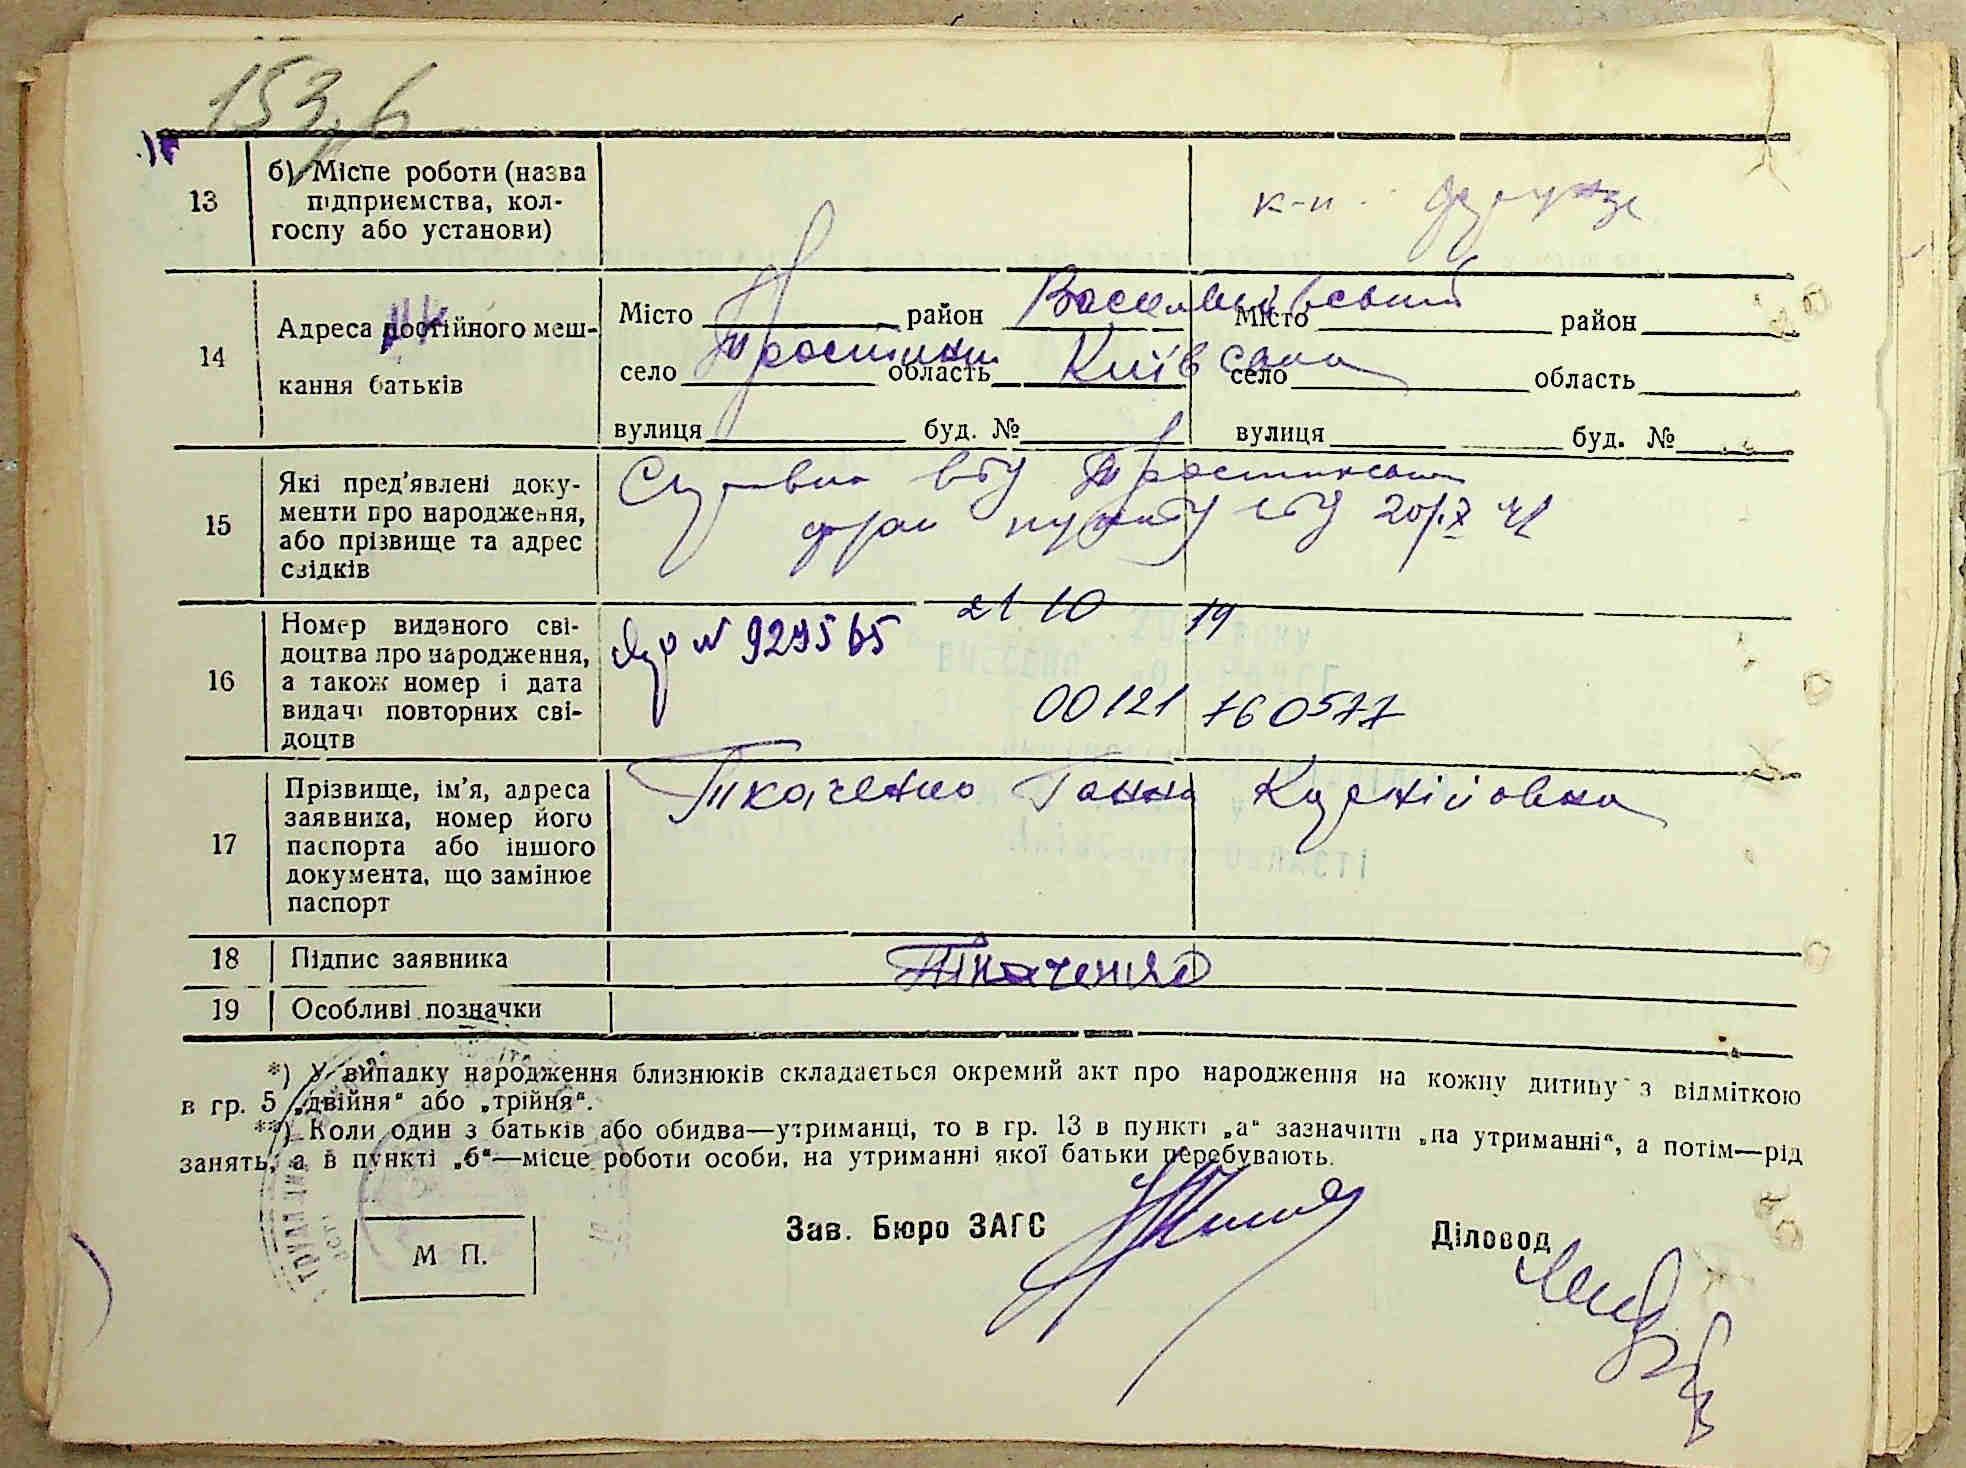 153, б
13
б) Місце роботи (назва
підприємства, кол-
госпу або установи)
к-п Фрунзе
14
Адреса постійного меш-
кання батьків
Місто район Васильківський
Місто район
село Тростинки область Київська
село область
вулиця буд. №
вулиця буд. №
15
Які пред'явлені доку-
менти про народження,
або прізвище та адрес
свідків
Тростинської
16
Номер виданого сві-
доцтва про народження,
а також номер і дата
видачі повторних сві-
доцтв
21 10 19
№ 929565
00121 760577
17
Прізвище, ім'я, адреса
заявника, номер його
паспорта або іншого
документа, що замінює
паспорт
Ткаченко Ганна
18
Підпис заявника
Ткаченко
19
Особливі позначки
*) У випадку народження близнюків складається окремий акт про народження на кожну дитину з відміткою
в гр. 5 „двійня" або „трійня".
**) Коли один з батьків або обидва—утриманці, то в гр. 13 в пункті „а" зазначити „на утриманні", а потім—рід
занять, а в пункті „б"—місце роботи особи, на утриманні якої батьки перебувають.
Зав. Бюро ЗАГС
Діловод
М П.